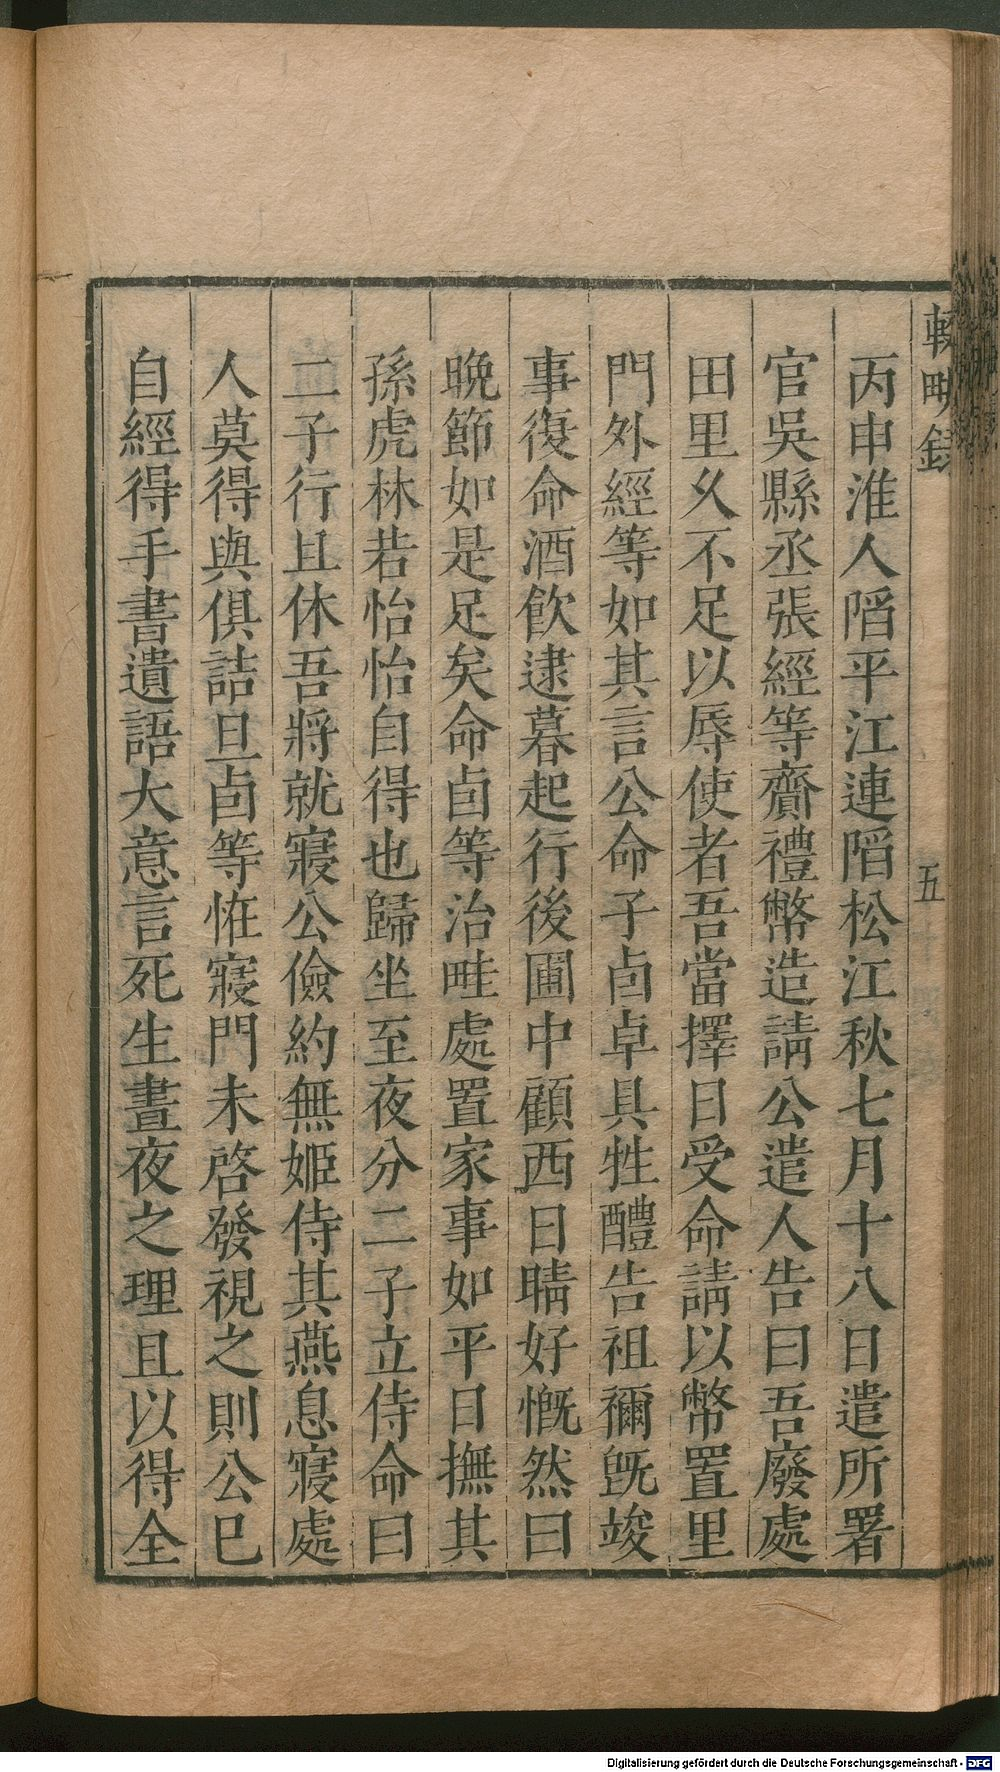 輟畊錄
五
丙申淮人䧟平江連䧟松江秋七月十八日遣所署
官吳縣丞張經等齎禮幣造請公遣人告曰吾廢處
田里久不足以辱使者吾當擇日受命請以幣置里
門外經等如其言公命子卣卓具牲醴告祖禰旣竣
事復命酒飲逮暮起行後圃中顧西日晴好慨然曰
晩節如是足矣命卣等治畦處置家事如平日撫其
孫虎林若怡怡自得也歸坐至夜分二子立侍命曰
二子行且休吾將就寢公儉約無姬侍其燕息寢處
人莫得與俱詰旦卣等恠寢門未啓發視之則公已
自經得手書遺語大意言死生晝夜之理且以得全
Digitalisierung gefördert durch die Deutsche Forschungsgemeinschaft - DFG